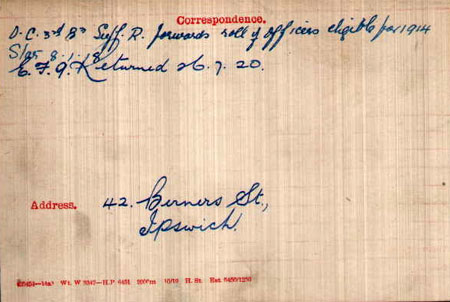 Correspondence.
O.C. 3rd Bn Suff. R. forwards roll of officers eligible for 1914
S/ar 8.1.18
E.F.9. Returned 26.7.20.
Address. 42. Berners St.,
Ipswich.
Wt. W 5347—H.P. 10/19 H. St.